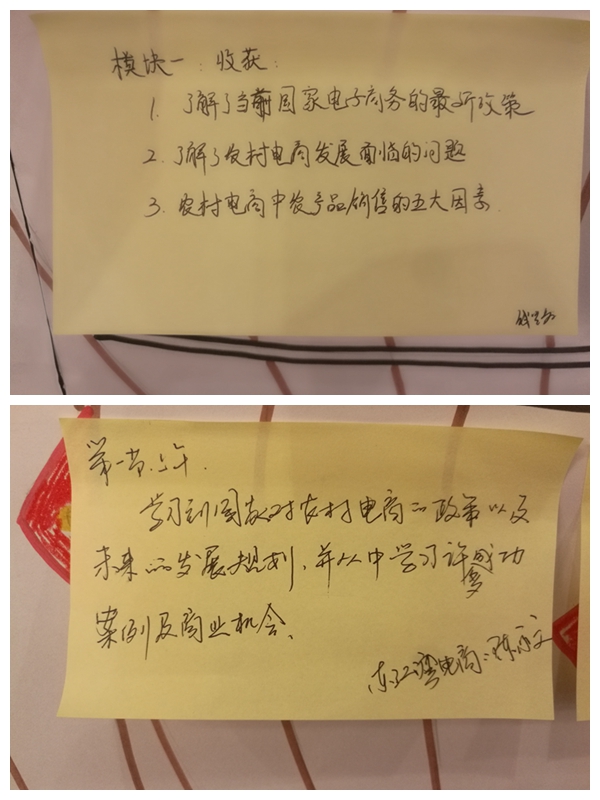 模块一：收获：
1. 了解了当前国家电子商务的最新政策
2. 了解了农村电商发展面临的问题
3. 农村电商中农产品销售的五大因素.
第一节.上午.
学习到国家对农村电商的政策以及
未来的发展规划，并从中学习许多成功
案例及商业机会、
东江湾电商：陈